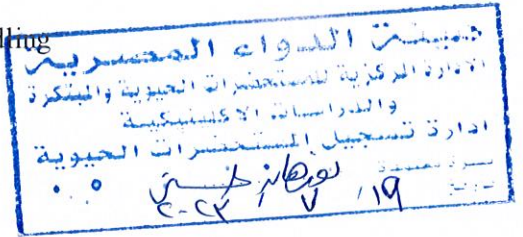 lling
هيئة الدواء المصرية
الادارة المركزية للمستحضرات الحيوية والمبتكرة
والدراسات الاكلينيكية
ادارة تسجيل المستحضرات الحيوية
نشرة معتمدة
نورهان
١٩ / ٧ / ٢٠٢٣